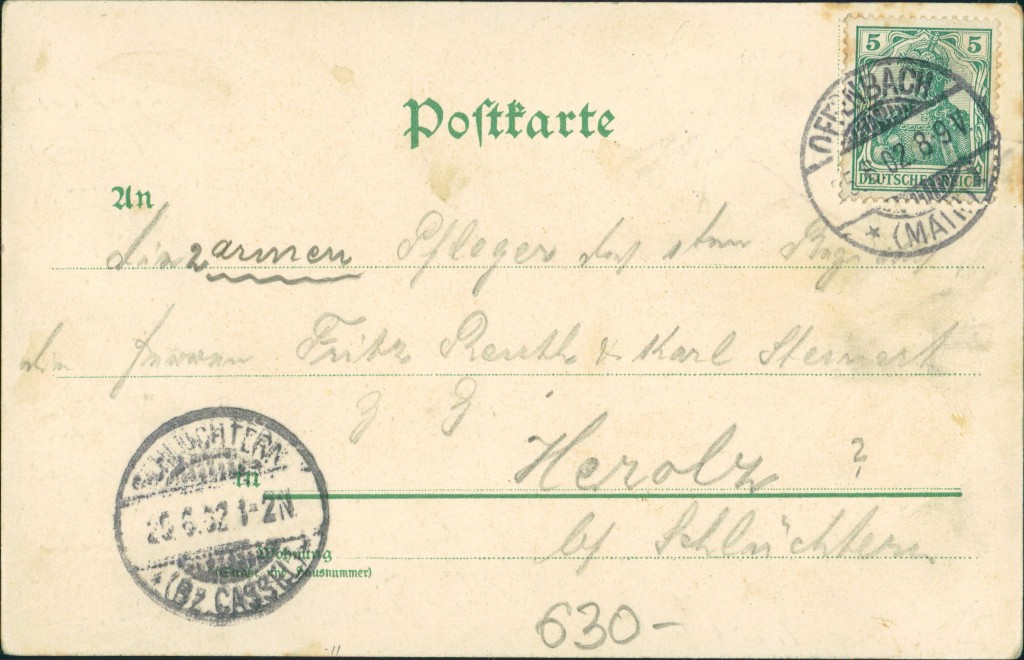 Postkarte
5 5
OFFENBACH
02. 8-9V.
* (MAIN)
DEUTSCHES REICH
An
2 armen Pfleger
Herren Fritz Reuth & Karl Steinert
z z
SCHLÜCHTERN
in Herolz ?
25.6.02 1-2N
by Schlüchtern
Wohnung
(Straße und Hausnummer)
* (BZ. CASSEL)
630-